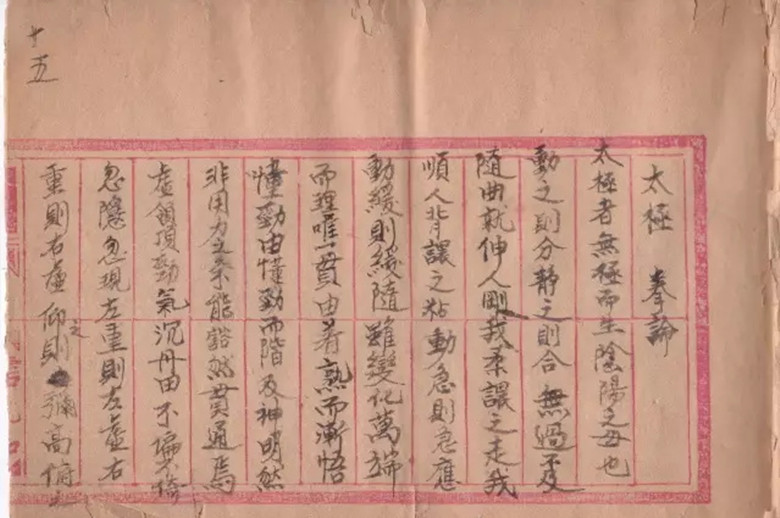 十五
太極 拳論
太極者無極而生陰陽之母也
動之則分静之則合無過不及
隨曲就伸人剛我柔讓之走我
順人背讓之粘動急則急應
動緩則緩隨雖變化萬端
而理唯一貫由着熟而漸悟
懂勁由懂勁而階及神明然
非用力之久能豁然貫通焉
虛領頂勁氣沉丹田不偏不倚
忽隱忽現左重則左虛右
重則右虛仰之則彌高俯之